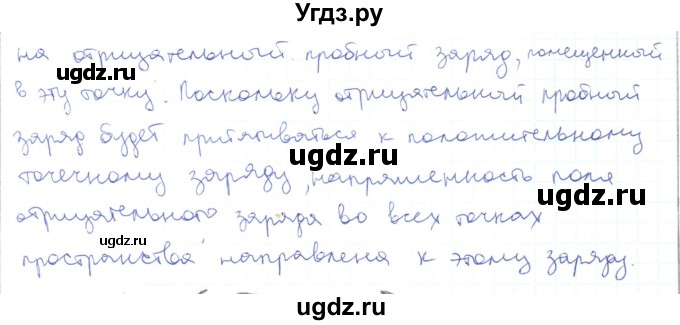 Угдз.ру
на отрицательный пробный заряд, помещенный
в эту точку. Поскольку отрицательный пробный
заряд будет притягиваться к положительному
точечному заряду, напряженность поля
отрицательного заряда во всех точках
пространства направлена к этому заряду.
ugdz.ru
ugdz.ru
ugdz.ru
ugdz.ru
ugdz.ru
ugdz.ru
ugdz.ru